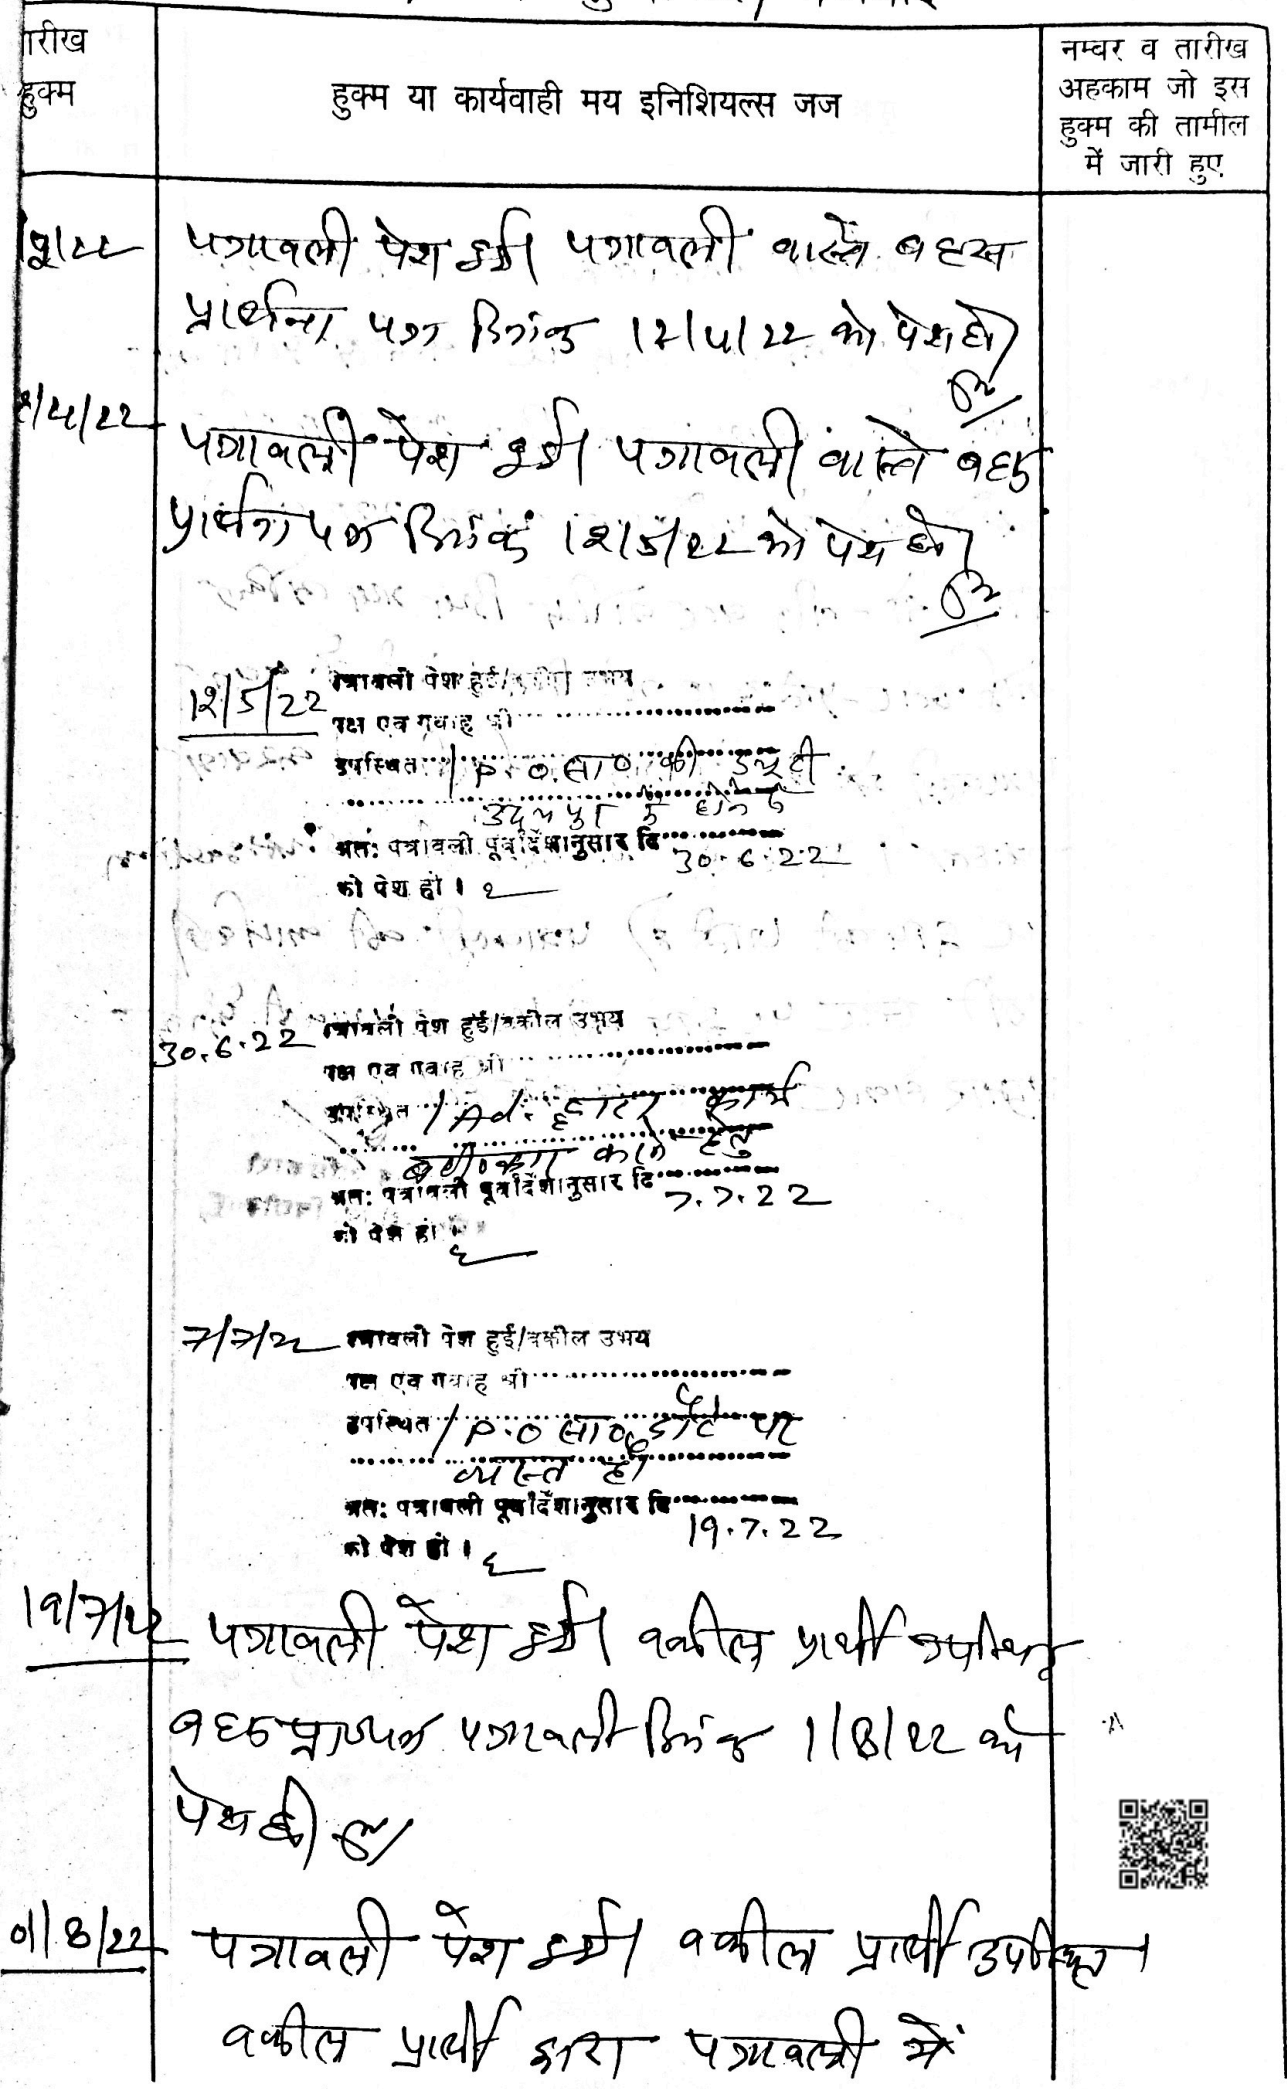 तारीख
हुक्म
हुक्म या कार्यवाही मय इनिशियल्स जज
नम्बर व तारीख
अहकाम जो इस
हुक्म की तामील
में जारी हुए
पत्रावली पेश हुई। पत्रावली वास्ते बहस
प्रार्थना पत्र दिनांक 12/4/22 को पेश हो।
2/4/22
पत्रावली पेश हुई। पत्रावली वास्ते बहस
प्रार्थना पत्र दिनांक 12/5/22 को पेश हो।
12/5/22
पत्रावली पेश हुई/वकील उभय
पक्ष एवं गवाह श्री
उपस्थित / P.O. सा० की ड्यूटी
उदयपुर में होने से
अतः पत्रावली पूर्वादेशानुसार दि 30.6.22
को पेश हो।
30.6.22
पत्रावली पेश हुई/वकील उभय
पक्ष एवं गवाह श्री
उपस्थित / Ad. कार्य
हेतु
अतः पत्रावली पूर्वादेशानुसार दि 7.7.22
को पेश हो।
7/7/22
पत्रावली पेश हुई/वकील उभय
पक्ष एवं गवाह श्री
उपस्थित / P.O सा० पर
व्यस्त है।
अतः पत्रावली पूर्वादेशानुसार दि 19.7.22
को पेश हो।
19/7/22
पत्रावली पेश हुई। वकील प्रार्थी उपस्थित
बहस पत्रावली दिनांक 1/8/22 को
पेश हो।
01/8/22
पत्रावली पेश हुई। वकील प्रार्थी उपस्थित।
वकील प्रार्थी द्वारा पत्रावली में